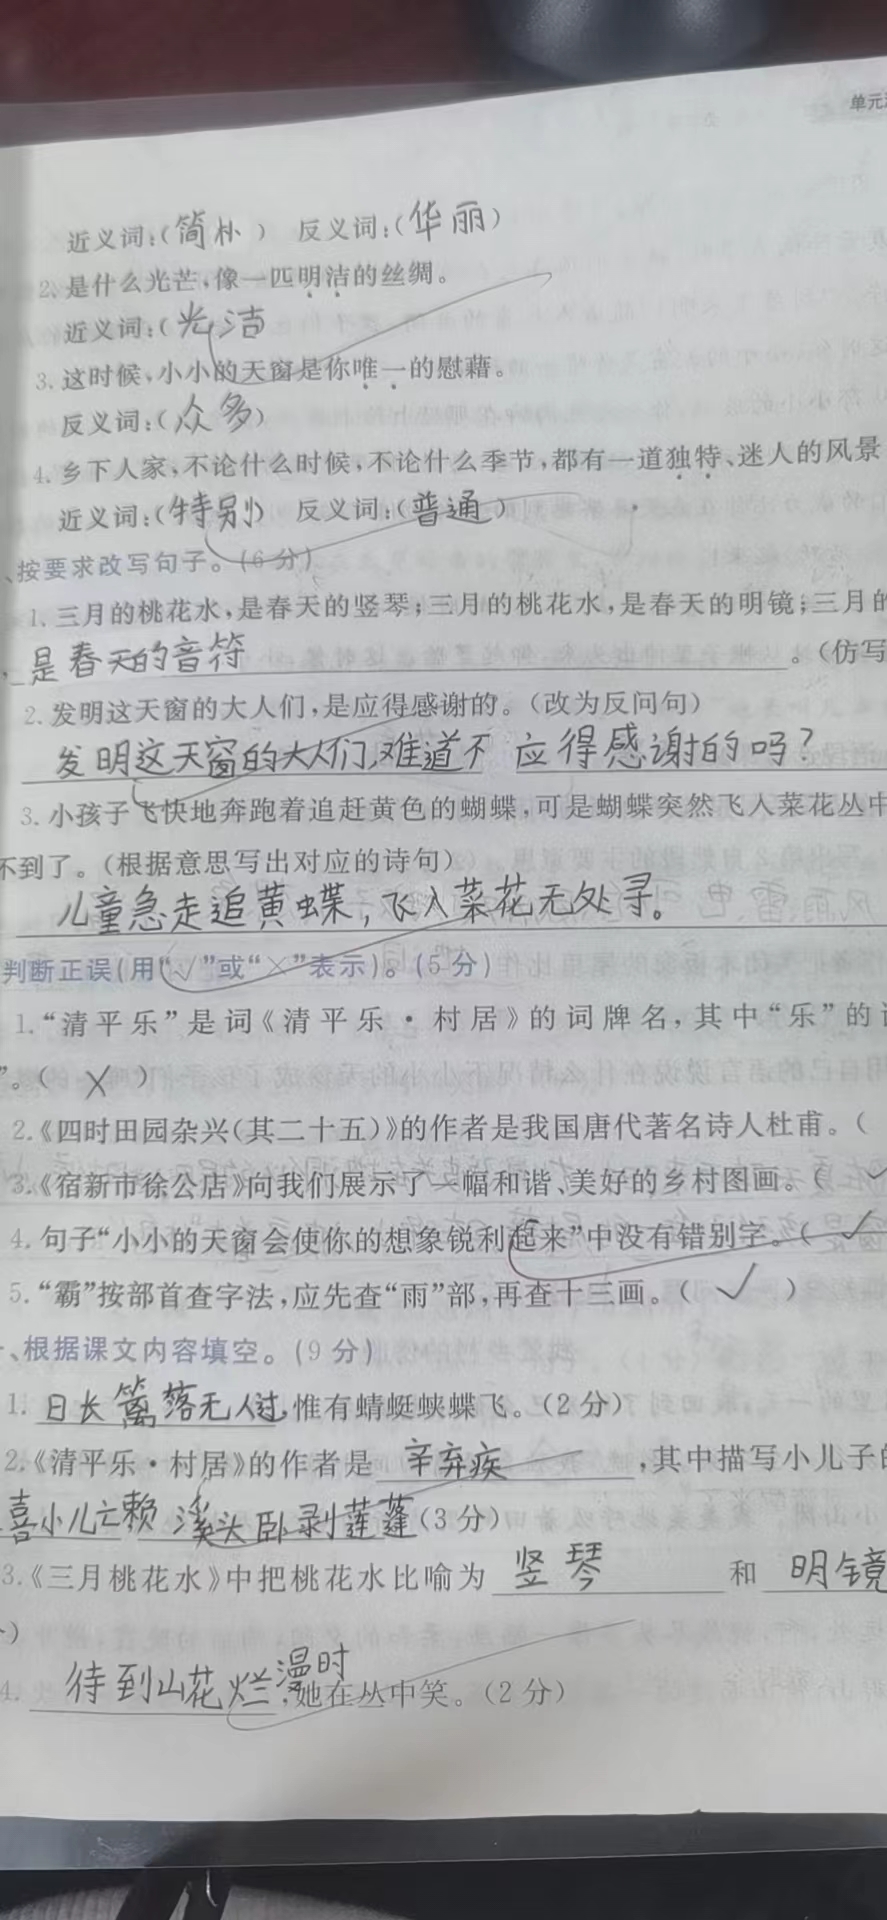 单元
近义词:(简朴) 反义词:(华丽)
2.是什么光芒,像一匹明洁的丝绸。
近义词:(光洁
3.这时候,小小的天窗是你唯一的慰藉。
反义词:(众多)
4.乡下人家,不论什么时候,不论什么季节,都有一道独特、迷人的风景
近义词:(特别) 反义词:(普通)
、按要求改写句子。(6分)
1.三月的桃花水,是春天的竖琴;三月的桃花水,是春天的明镜;三月的
,是春天的音符。(仿写
2.发明这天窗的大人们,是应得感谢的。(改为反问句)
发明这天窗的大人们,难道不应得感谢的吗?
3.小孩子飞快地奔跑着追赶黄色的蝴蝶,可是蝴蝶突然飞入菜花丛中
不到了。(根据意思写出对应的诗句)
儿童急走追黄蝶,飞入菜花无处寻。
判断正误(用“√”或“×”表示)。(5分)
1.“清平乐”是词《清平乐·村居》的词牌名,其中“乐”的
”。(×)
2.《四时田园杂兴(其二十五)》的作者是我国唐代著名诗人杜甫。(
3.《宿新市徐公店》向我们展示了一幅和谐、美好的乡村图画。(✓
4.句子“小小的天窗会使你的想象锐利起来”中没有错别字。(✓
5.“霸”按部首查字法,应先查“雨”部,再查十三画。(✓)
、根据课文内容填空。(9分)
1.日长篱落无人过,惟有蜻蜓蛱蝶飞。(2分)
2.《清平乐·村居》的作者是辛弃疾,其中描写小儿子的
喜小儿亡赖 溪头卧剥莲蓬(3分)
3.《三月桃花水》中把桃花水比喻为竖琴和明镜
)
4.待到山花烂漫时,她在丛中笑。(2分)